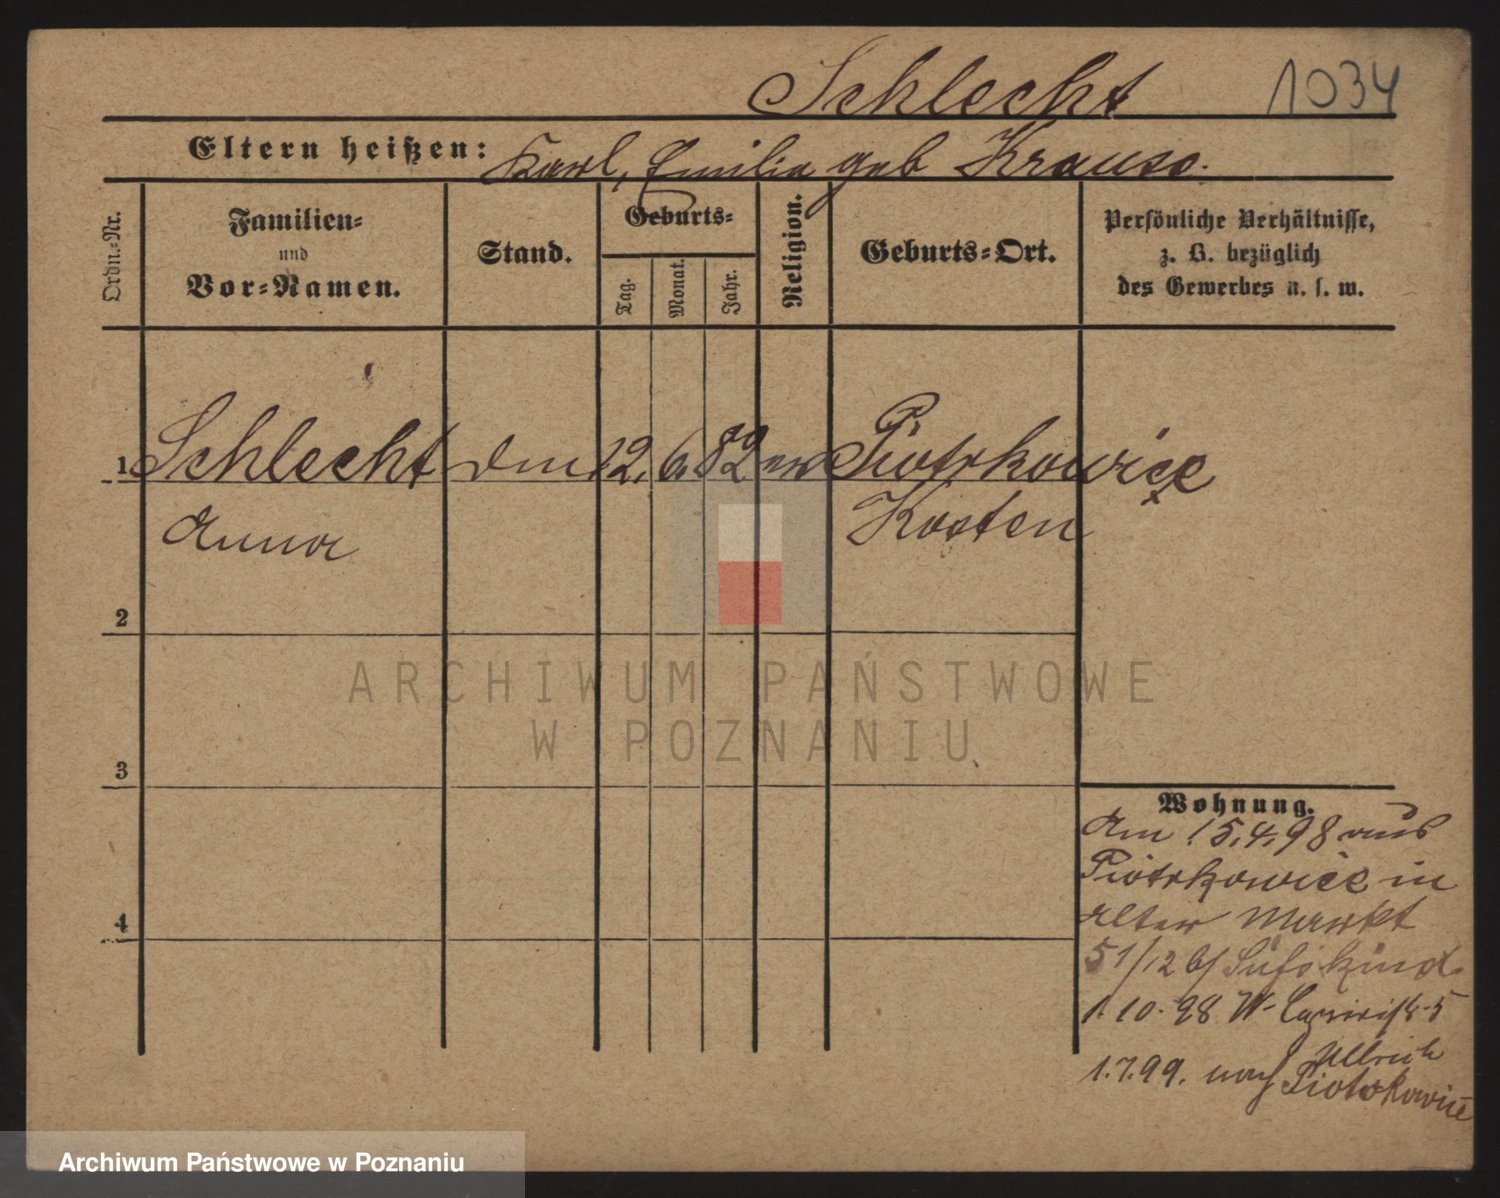 Schlecht 1034
Eltern heißen: Karl, Emilia geb Krause.
Ordn.-Nr.
Familien-
und
Vor-Namen.
Stand.
Geburts-
Tag.
Monat.
Jahr.
Religion.
Geburts-Ort.
Persönliche Verhältnisse,
z. B. bezüglich
des Gewerbes u. s. w.
1 Schlecht 12. 6. 82 ev Piotrkowice
Anna Kosten
2
3
4
Wohnung.
Am 15.4.98 aus
Piotrkowice in
Alter Markt
51/12 b/
1.10.98 W- 5
Ullrich
1.7.99. nach Piotrkowice
ARCHIWUM PAŃSTWOWE
W POZNANIU
Archiwum Państwowe w Poznaniu